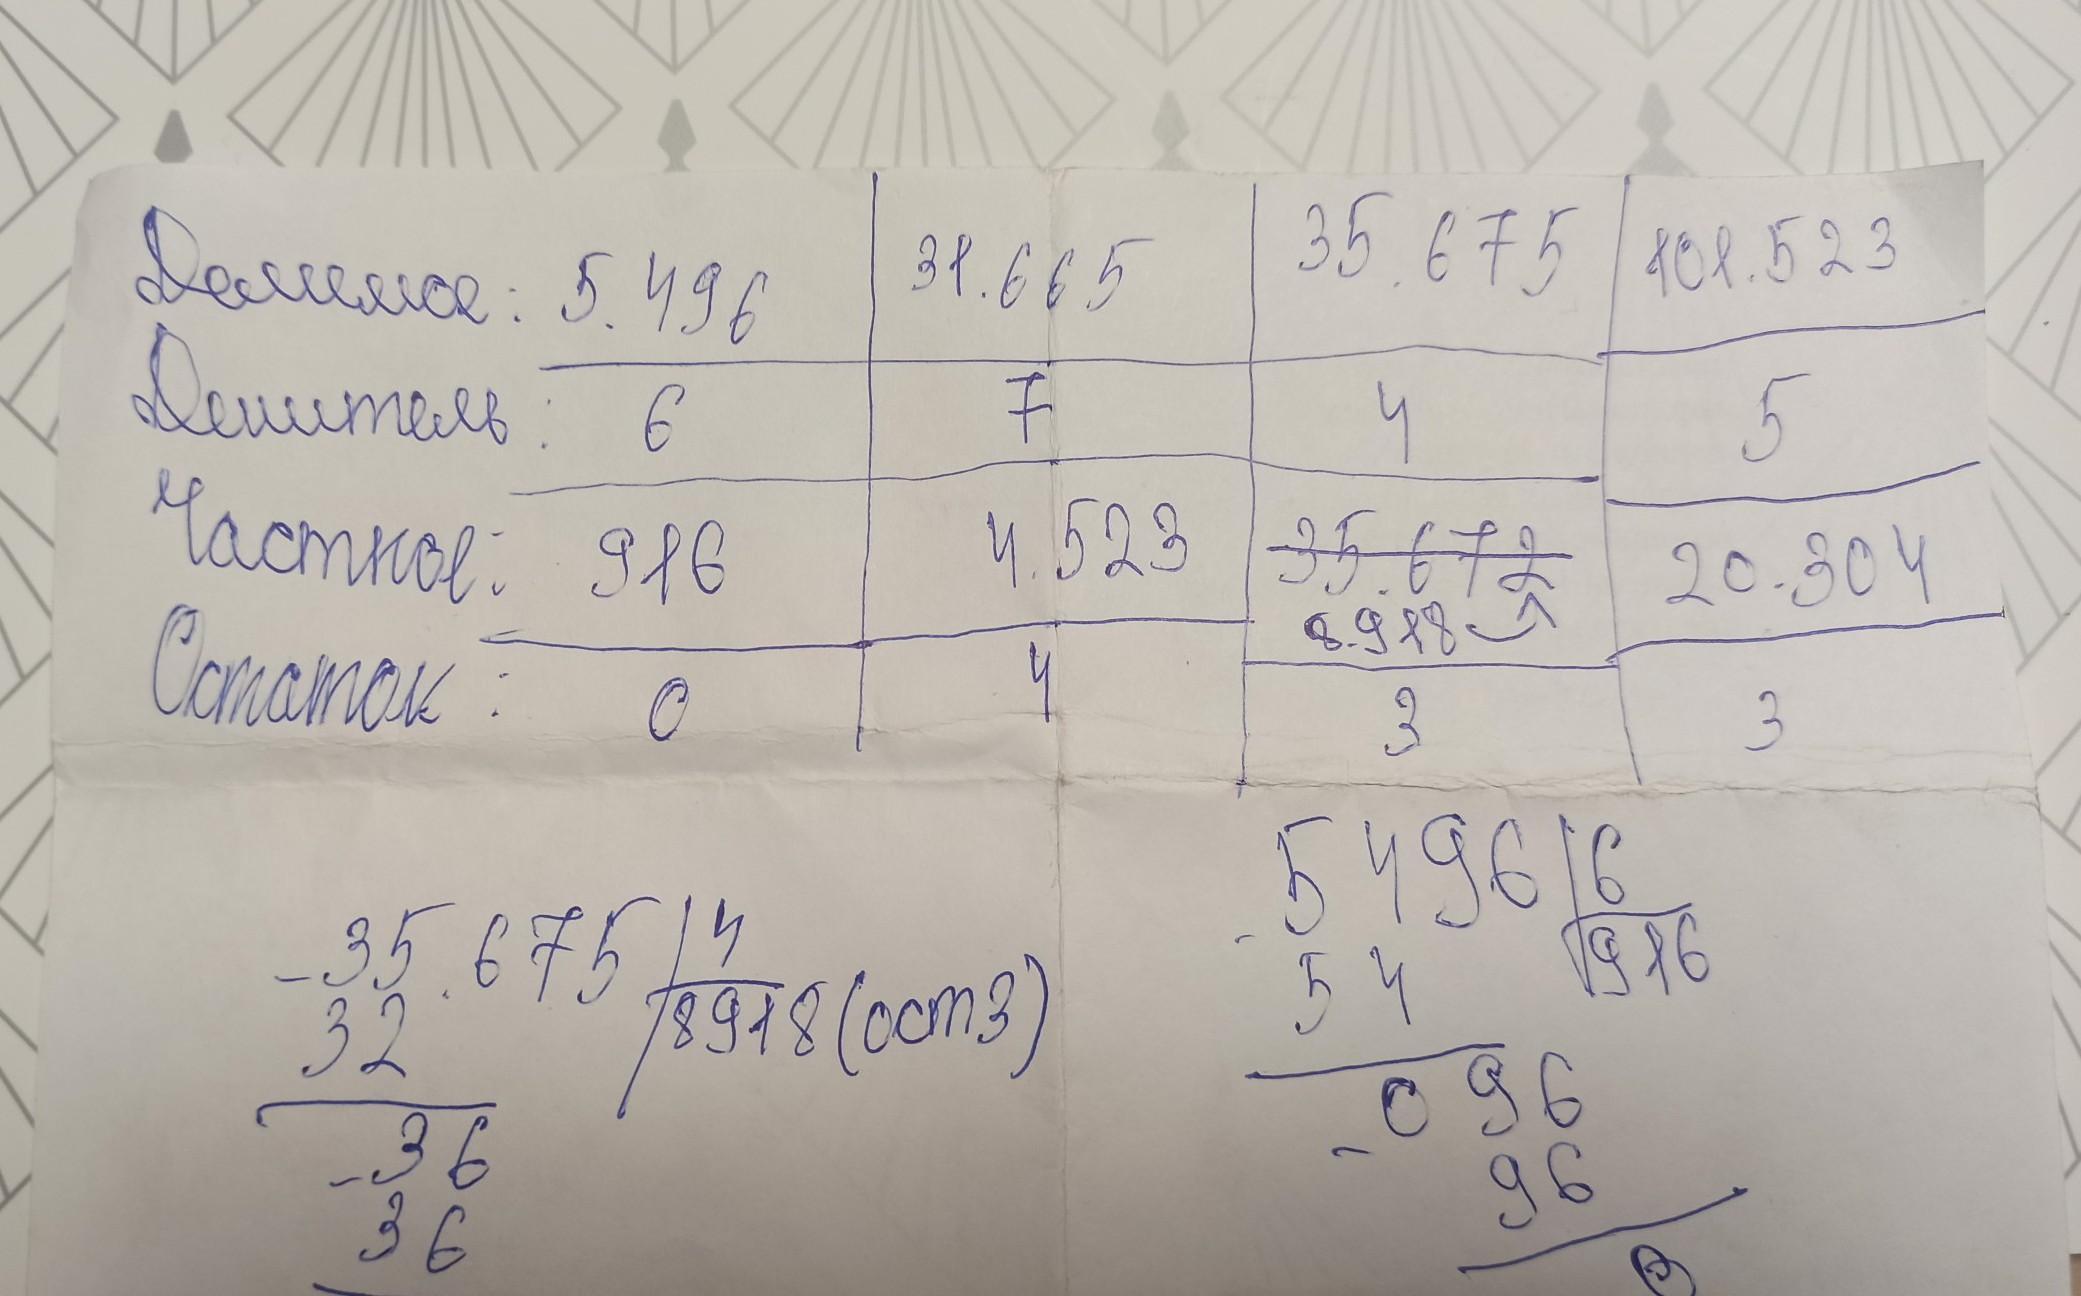 Делимое: 5.496 31.665 35.675 101.523
Делитель: 6 7 4 5
Частное: 916 4.523 35.672 20.304
8.918
Остаток: 0 4 3 3
-35.675 4
32 8918 (ост 3)
-36
36
-5496 6
54 916
-096
96
0